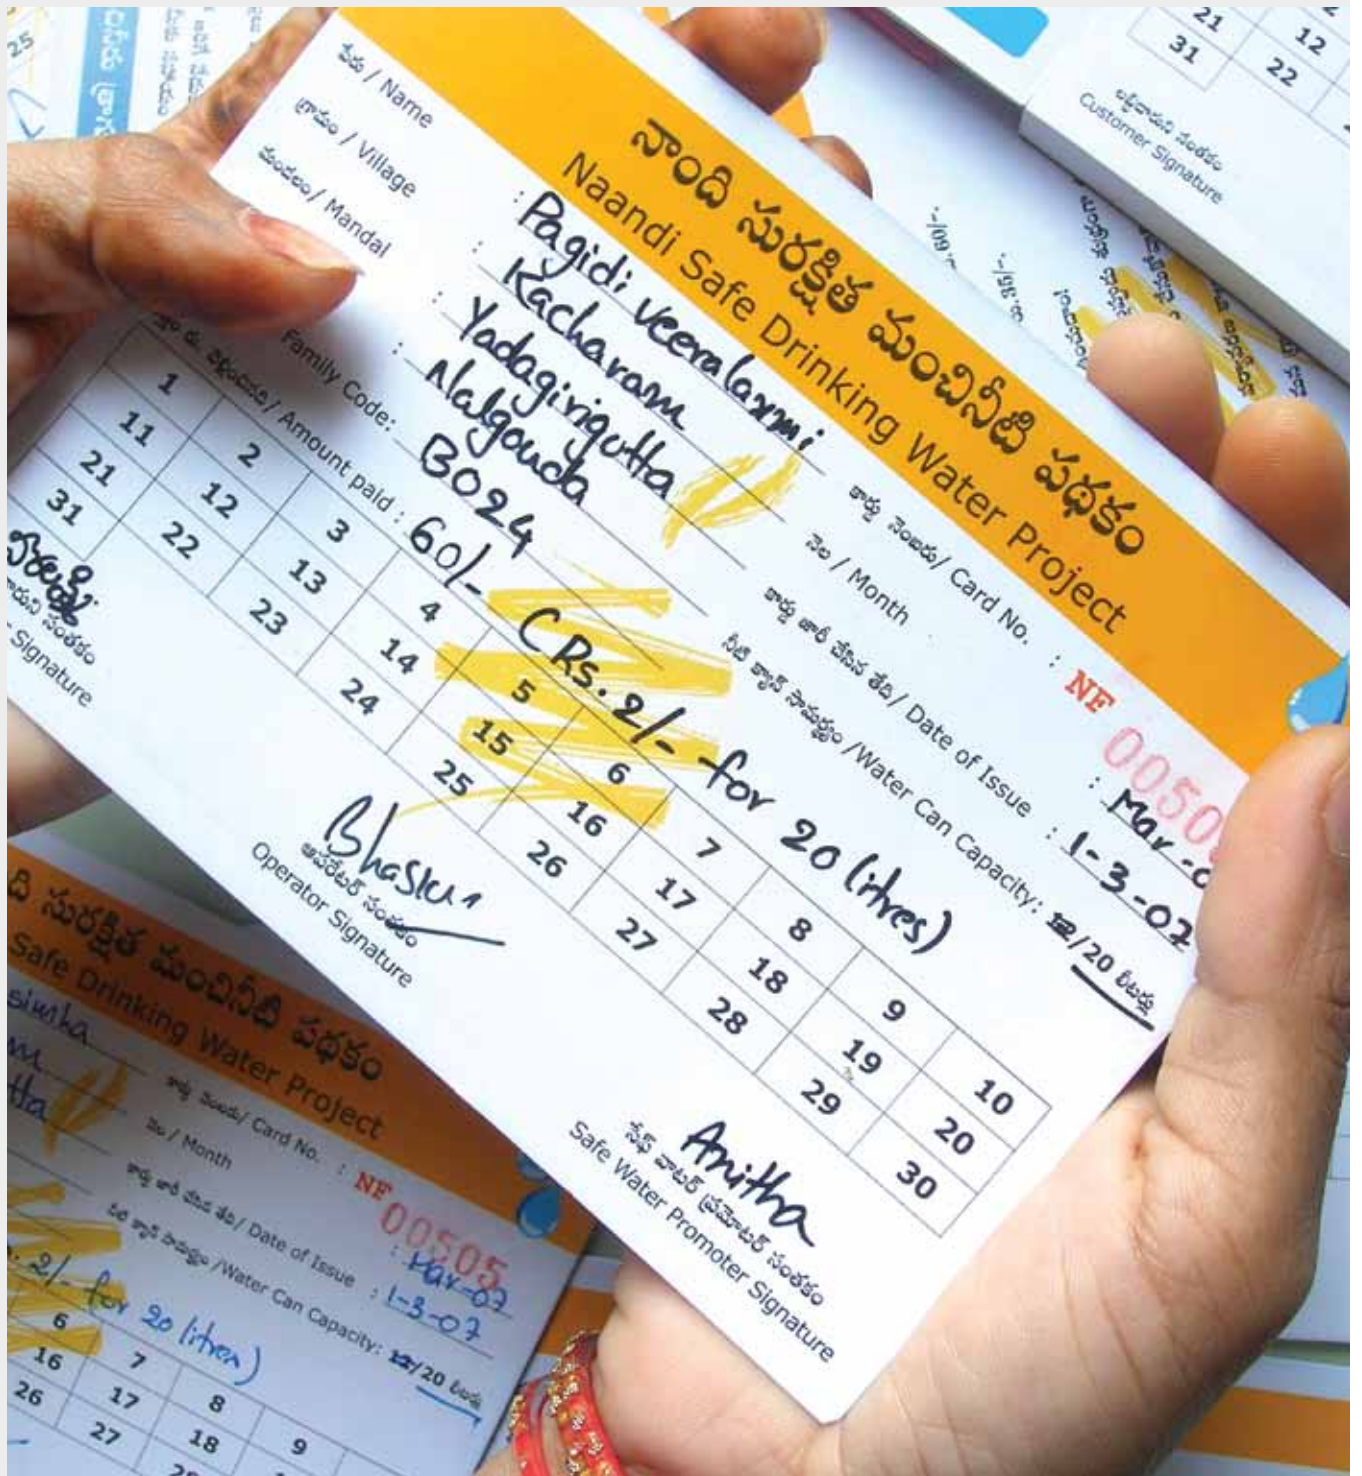 నాంది సురక్షిత మంచినీటి పథకం
Naandi Safe Drinking Water Project
పేరు / Name : Pagidi Veeralaxmi
గ్రామం / Village : Kacharam
మండలం/ Mandal : Yadagirigutta
: Nalgonda
Family Code: B024
Amount paid : 60/- (Rs.2/- for 20 litres)
కార్డు నెంబరు/ Card No. : NF 0050
నెల / Month : Mar-0
కార్డు జారీ చేసిన తేది/ Date of Issue : 1-3-07
నీటి క్యాన్ సామర్థ్యం /Water Can Capacity: 12/20 లీటర్లు
1 2 3 4 5 6 7 8 9 10
11 12 13 14 15 16 17 18 19 20
21 22 23 24 25 26 27 28 29 30
31
సంతకం
Signature
Bhaskar
ఆపరేటర్ సంతకం
Operator Signature
Anitha
సేఫ్ వాటర్ ప్రమోటర్ సంతకం
Safe Water Promoter Signature
21 12
31 22
Customer Signature
.60/-.
.35/-.
25
ది సురక్షిత మంచినీటి పథకం
Safe Drinking Water Project
simha
కార్డు నెంబరు/ Card No. : NF 00505
నెల / Month : Mar-07
కార్డు జారీ చేసిన తేది/ Date of Issue : 1-3-07
నీటి క్యాన్ సామర్థ్యం /Water Can Capacity: 12/20 లీటర్లు
. 2/- for 20 litres)
6 7 8 9
16 17 18
26 27